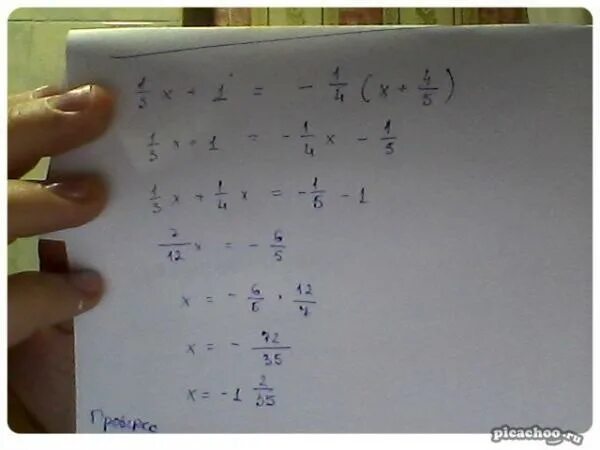 1/3 x + 1 = - 1/4 ( x + 4/5 )
1/3 x + 1 = - 1/4 x - 1/5
1/3 x + 1/4 x = - 1/5 - 1
7/12 x = - 6/5
x = - 6/5 · 12/7
x = - 72/35
x = - 1 2/35
picachoo.ru